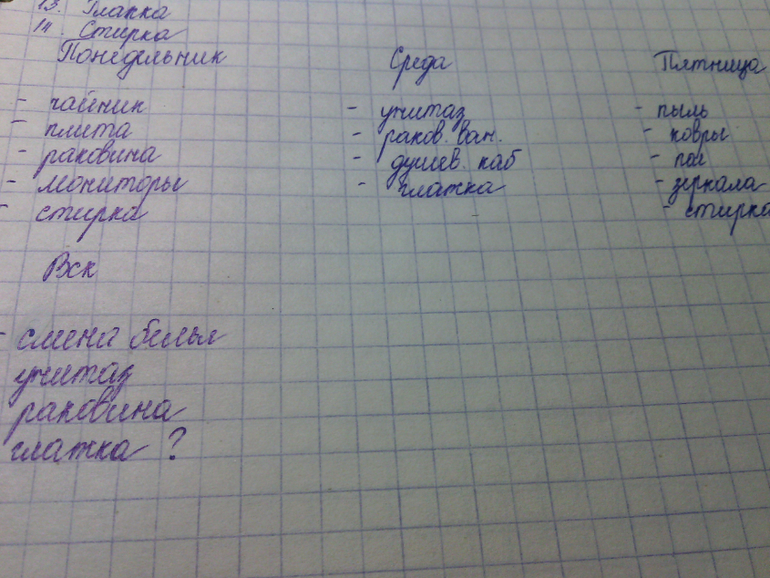 13. Глажка
14. Стирка
Понедельник
- чайник
- плита
- раковина
- мониторы
- стирка
Среда
- унитаз
- раков. ван.
- душев. каб
- глажка
Пятница
- пыль
- ковры
- пол
- зеркала
- стирка
Вск
- смена белья
унитаз
раковина
глажка ?